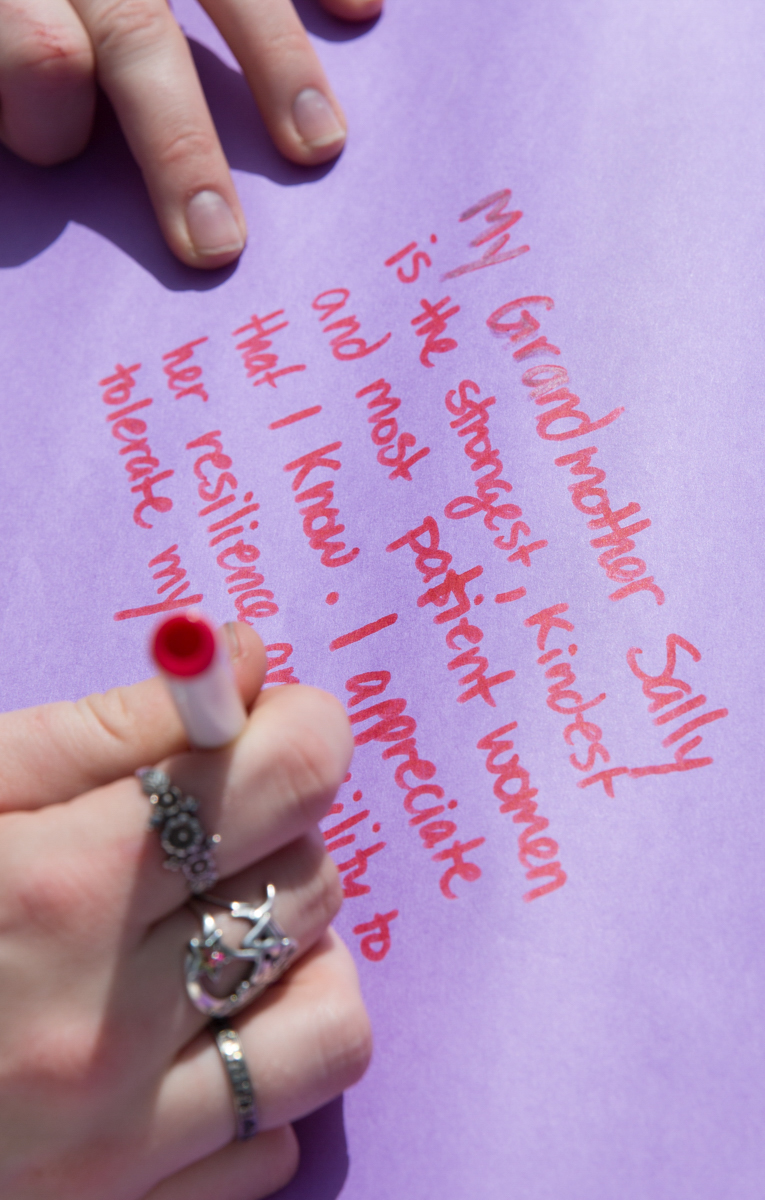 My Grandmother Sally
is the strongest, kindest
and most patient women
that I know. I appreciate
her resilience to
tolerate my